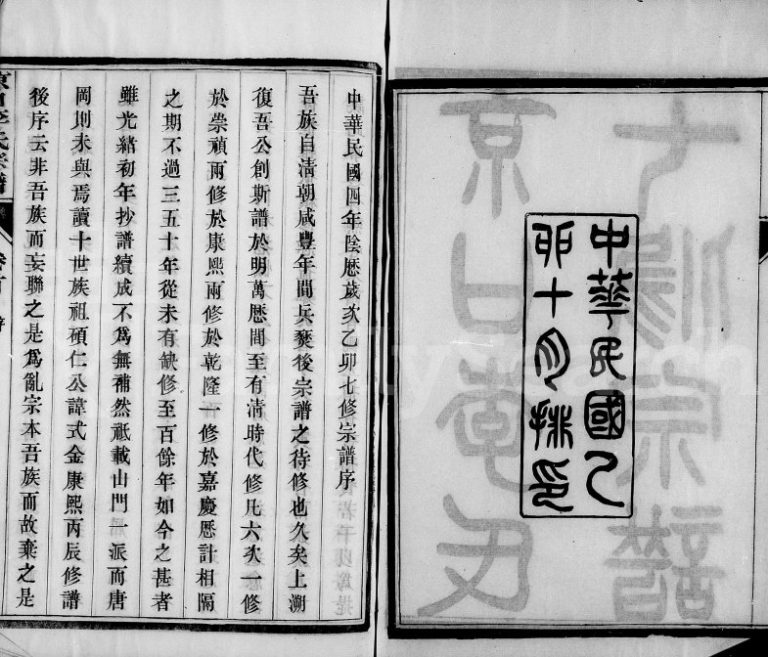 中華民國乙
卯十月排印
中華民國四年陰厯歲次乙卯七修宗譜序
吾族自清朝咸豐年間兵燹後宗譜之待修也久矣上溯
復吾公創斯譜於明萬厯間至有清時代修凡六次一修
於崇禎兩修於康熙兩修於乾隆一修於嘉慶厯計相隔
之期不過三五十年從未有缺修至百餘年如今之甚者
雖光緒初年抄譜續成不爲無補然祗載山門一派而唐
岡則未與焉讀十世族祖碩仁公諱式金康熙丙辰修譜
後序云非吾族而妄聯之是爲亂宗本吾族而故棄之是